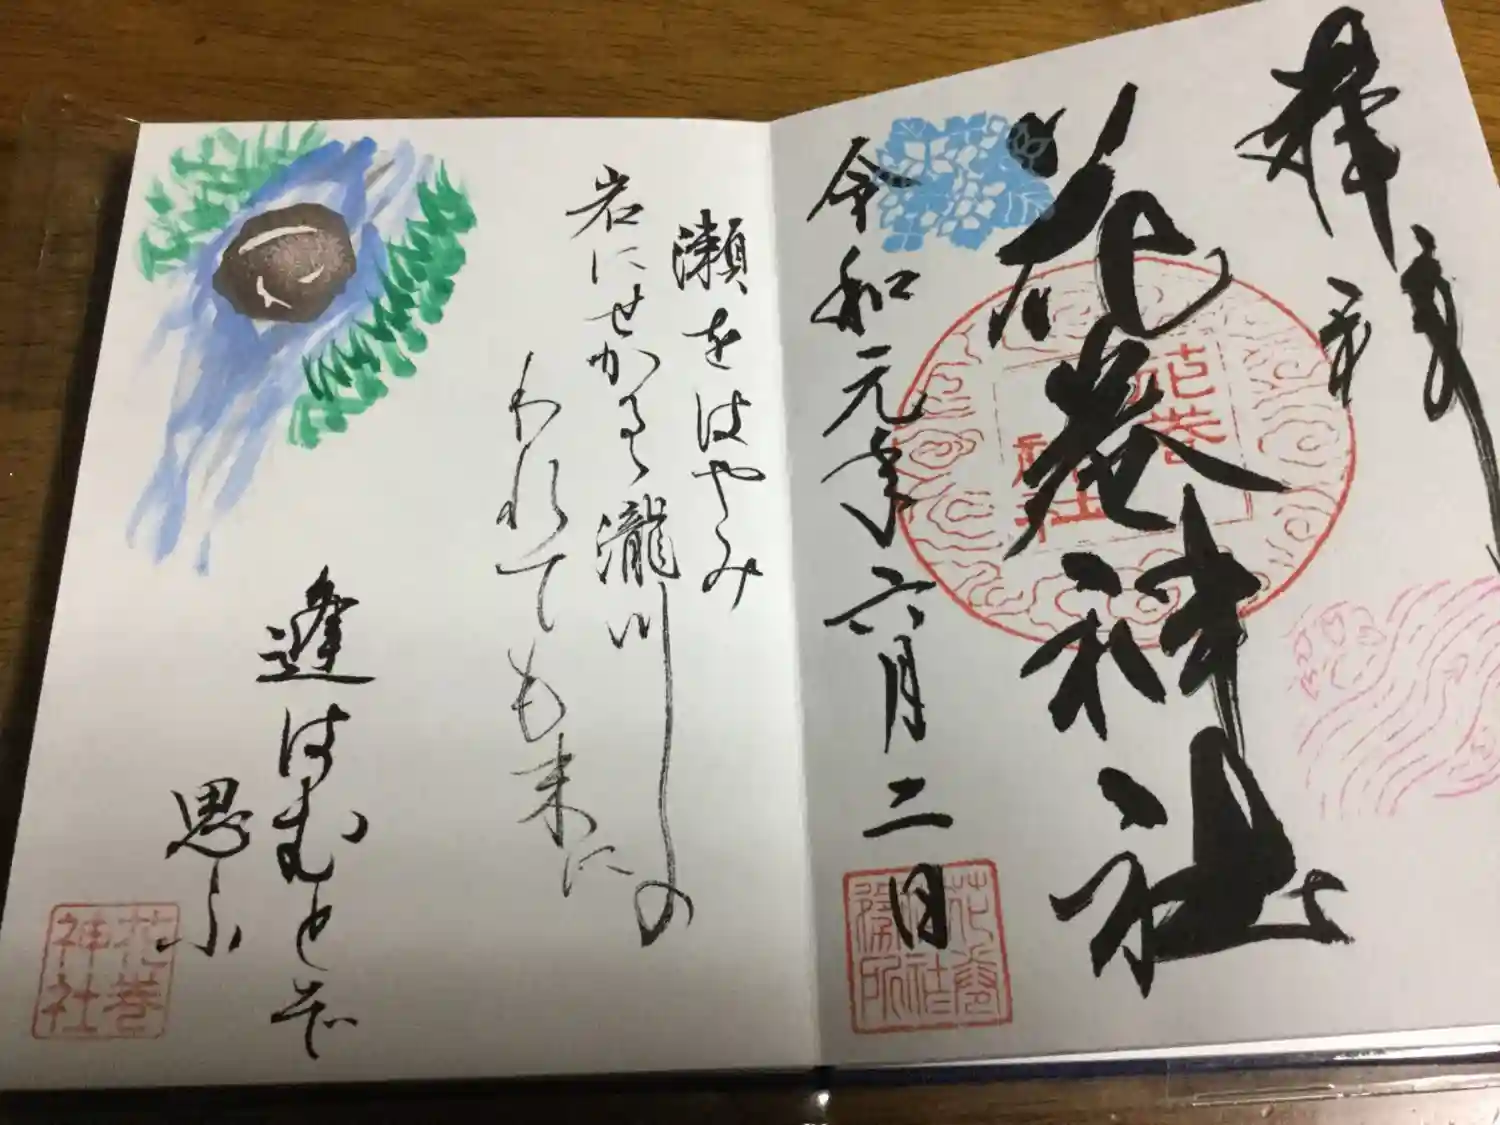 奉拝
花巻神社
令和元年六月二日
花巻
神社
花巻
神社
務所
瀬をはやみ
岩にせかるゝ瀧川の
われても末に
逢はむとぞ
思ふ
花巻
神社